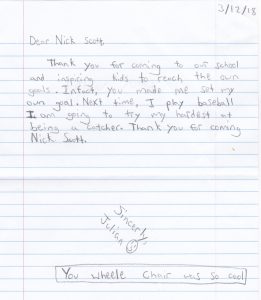 3/12/18
Dear Nick Scott,
Thank you for coming to our school
and inspiring kids to reach the own
goals. Infact, you made me set my
own goal. Next time, I play baseball
I am going to try my hardest at
being a catcher. Thank you for coming
Nick Scott.
Sincerly,
Julian
You wheele chair was so cool